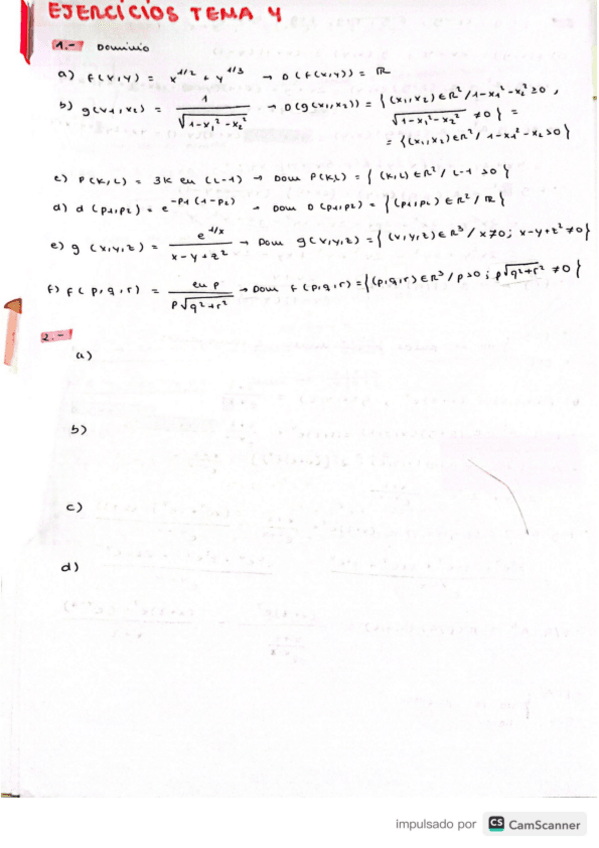 EJERCICIOS TEMA 4
1.- Dominio
a) f(x,y) = x^1/2 + y^1/3 → D(f(x,y)) = ℝ
b) g(x1,x2) = 1/√(1-x1²-x2²) → D(g(x1,x2)) = {(x1,x2)∈ℝ²/1-x1²-x2²≥0, √(1-x1²-x2²) ≠0} =
= {(x1,x2)∈ℝ²/ 1-x1²-x2>0}
c) P(K,L) = 3K ln (L-1) → Dom P(K,L) = {(K,L)∈ℝ²/ L-1>0}
d) d(p1,p2) = e^-p1(1-p2) → Dom D(p1,p2) = {(p1,p2)∈ℝ²/ℝ}
e) g(x,y,z) = e^1/x / x-y+z² → Dom g(x,y,z) = {(x,y,z)∈ℝ³/ x≠0; x-y+z²≠0}
f) f(p,q,r) = ln p / p√(q²+r²) → Dom f(p,q,r) = {(p,q,r)∈ℝ³/p>0; p√(q²+r²) ≠0}
2.-
a)
b)
c)
d)
impulsado por CS CamScanner